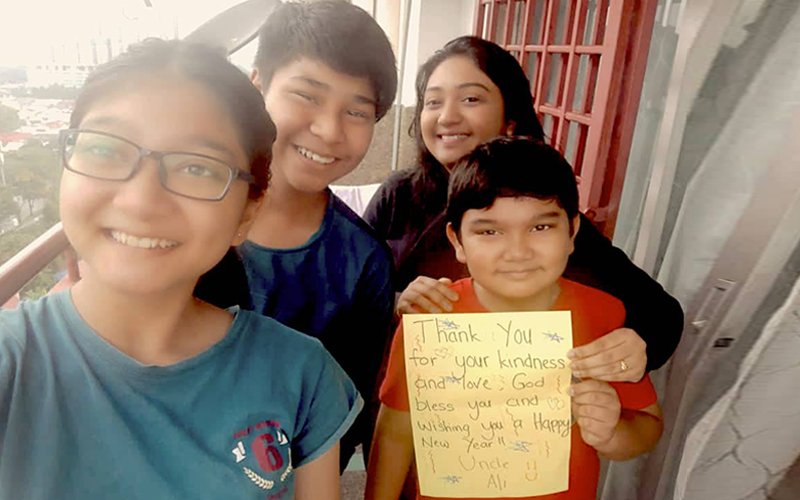 Thank You
for your kindness
and love God
bless you and
wishing you a Happy
New Year"
Uncle
Ali
6